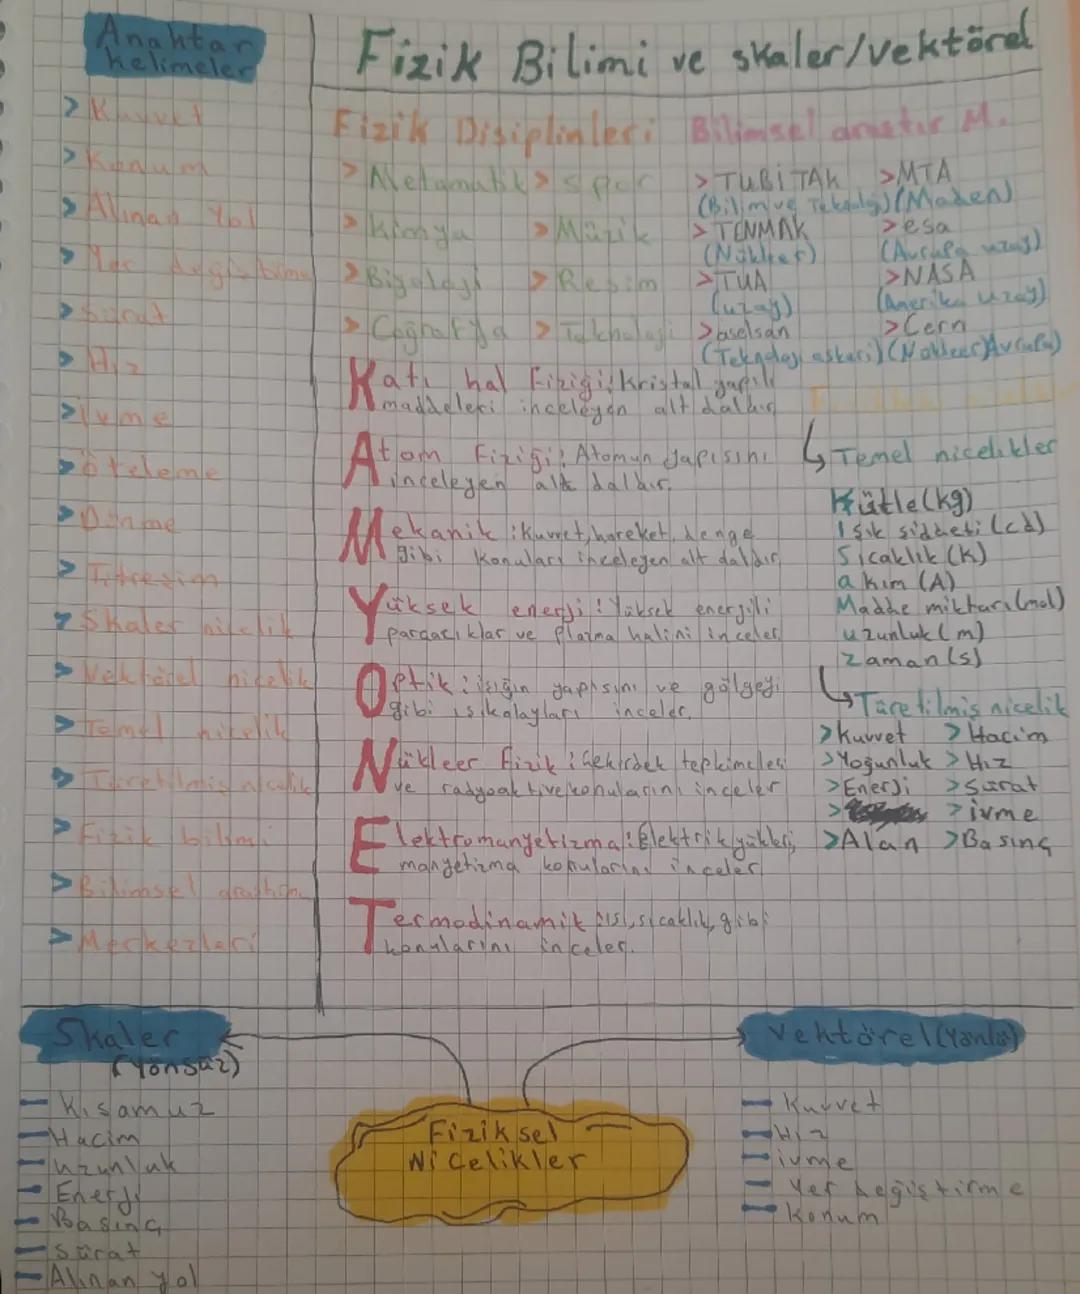 Anahtar
kelimeler
> Kuvvet
> Konum
> Alınan Yol
> Yer değiştirme
> Sürat
> Hız
> ivme
> öteleme
> Dönme
> Titreşim
> Skaler nicelik
> Vektörel nicelik
> Temel nicelik
> Türetilmiş nicelik
> Fizik bilimi
> Bilimsel araştırma
> Merkezleri
Fizik Bilimi ve skaler/vektörel
Fizik Disiplinleri
> Matematik > spor
> Kimya > Müzik
> Biyoloji > Resim
> Coğrafya > Teknoloji
Bilimsel araştır M.
> TUBİTAK > MTA
(Bilim ve Teknoloji) (Maden)
> TENMAK > esa
(Nükleer) (Avrupa uzay)
> TUA > NASA
(uzay) (Amerika uzay)
> aselsan > Cern
(Teknoloji askeri) (Nükleer Avrupa)
Katı hal Fiziği: Kristal yapılı
maddeleri inceleyen alt daldır
Atom Fiziği: Atomun yapısını
inceleyen alt daldır.
Mekanik: kuvvet, hareket, denge
gibi konuları inceleyen alt daldır
Yüksek enerji: Yüksek enerjili
parçacıklar ve plazma halini inceler
Optik: ışığın yapısını ve gölgeyi
gibi ışık olayları inceler.
Nükleer Fizik: Çekirdek tepkimeleri
ve radyoaktive konularını inceler
Elektromanyetizma: Elektrik yükleri,
manyetizma konularını inceler
Termodinamik: ısı, sıcaklık, gibi
konularını inceler.
Temel nicelikler
Kütle (kg)
Işık şiddeti (cd)
Sıcaklık (K)
akım (A)
Madde miktarı (mol)
uzunluk (m)
zaman (s)
Türetilmiş nicelik
> kuvvet > Hacim
> Yoğunluk > Hız
> Enerji > sürat
> > ivme
> Alan > Basınç
Fiziksel
Nicelikler
Skaler
(Yönsüz)
- Hacim
- uzunluk
- Enerji
- Basınç
- sürat
- Alınan yol
Vektörel (Yönlü)
- Kuvvet
- Hız
- ivme
- Yer değiştirme
- Konum